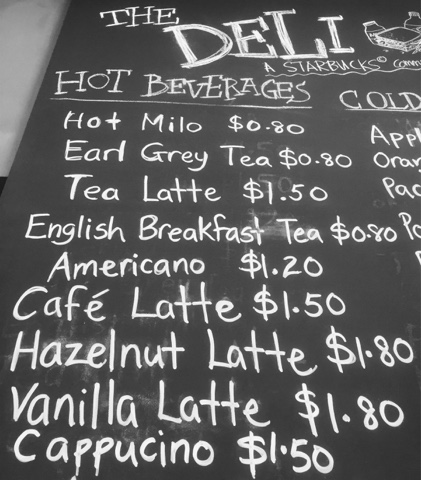 THE
DELI
A STARBUCKS
HOT BEVERAGES
Hot Milo $0.80
Earl Grey Tea $0.80
Tea Latte $1.50
English Breakfast Tea $0.80
Americano $1.20
Café Latte $1.50
Hazelnut Latte $1.80
Vanilla Latte $1.80
Cappucino $1.50
COLD